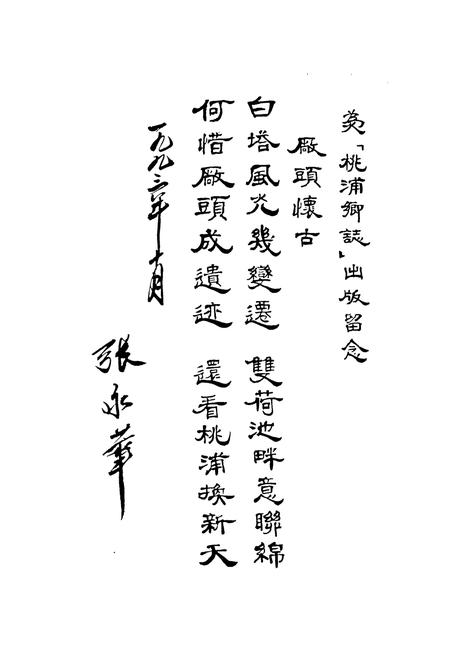 為「桃浦鄉誌」出版留念
厰頭懷古
白塔風光幾變遷 雙荷池畔意聯綿
何惜厰頭成遺迹 還看桃浦換新天
一九九三年十月
張永華